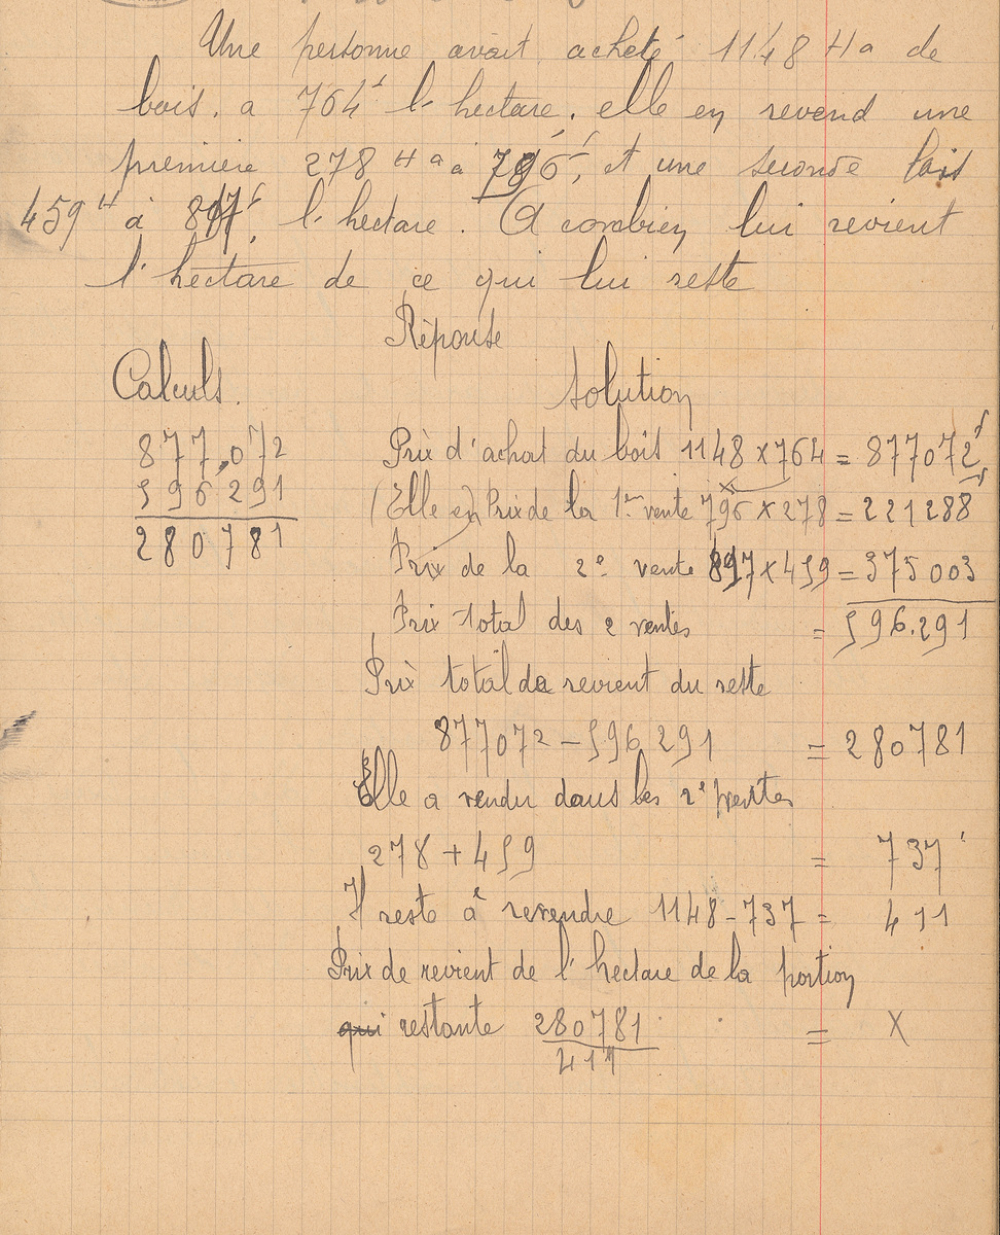 Une personne avait acheté 1148 Ha de
bois. a 764f l'hectare. elle en revend une
première 278 Ha à 796f, et une seconde fois
459H à 817f l'hectare. A combien lui revient
l'hectare de ce qui lui reste
Réponse
Calculs.
Solution
877,072
596 291
280781
Prix d'achat du bois 1148 x 764 = 877072f
(Elle en) Prix de la 1re vente 796 x 278 = 221288
Prix de la 2e vente 817 x 459 = 375003
Prix total des 2 ventes = 596.291
Prix total de revient du reste
877072 - 596 291 = 280781
Elle a vendu dans les 2e ventes
278 + 459 = 737
Il reste à revendre 1148 - 737 = 411
Prix de revient de l'hectare de la portion
qui restante 280781 = X
411